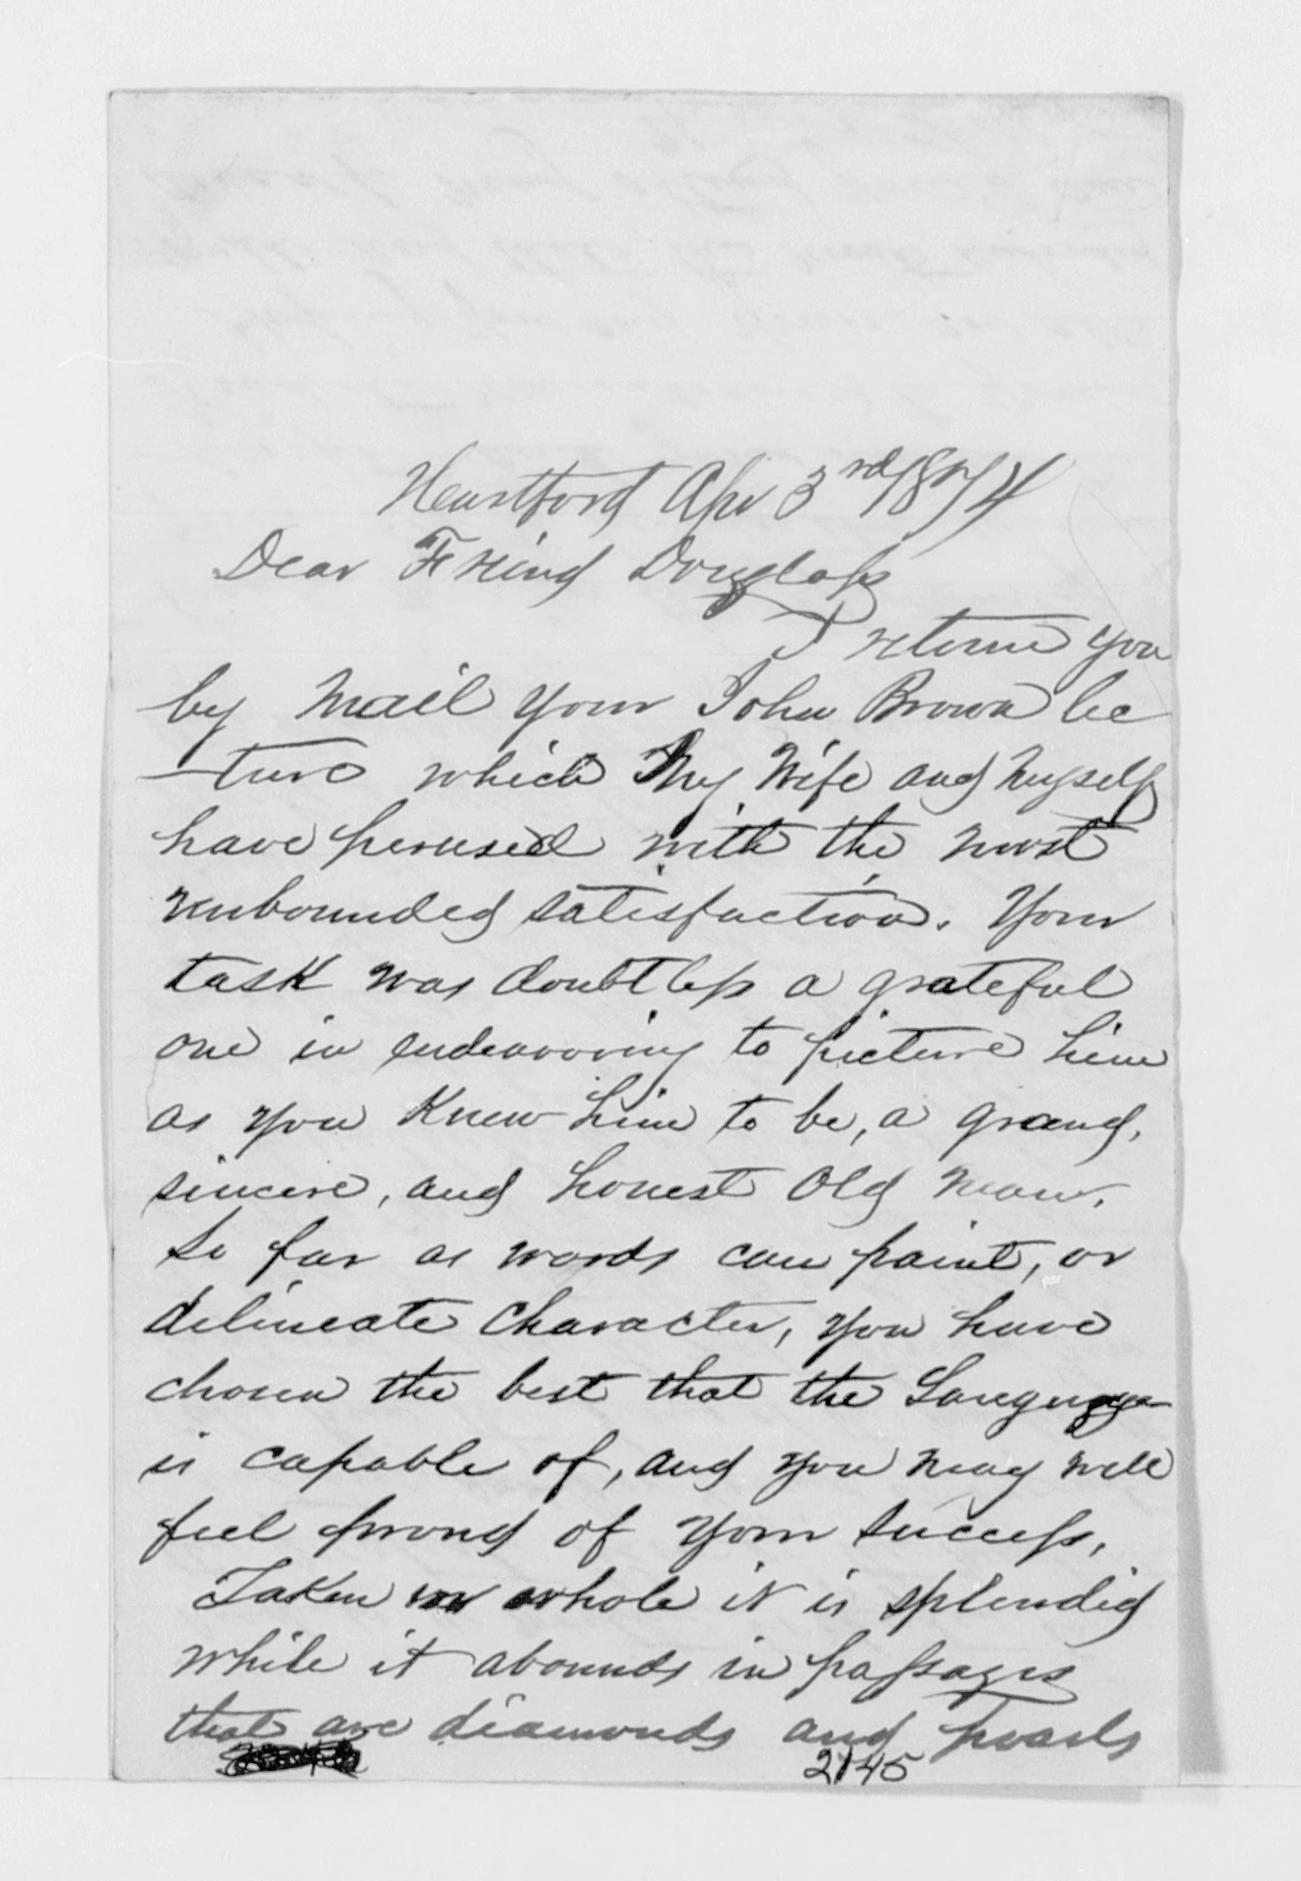 Heartford Apr 3rd/874
Dear Friend Douglass
I return you
by Mail your John Brown lec
ture which My Wife and myself
have perused with the most
unbounded satisfaction. Your
task was doubtless a grateful
one in endeavoring to picture him
as you Knew him to be, a grand,
sincere, and honest Old man.
So far as words can paint, or
delineate character, you have
chosen the best that the Language
is capable of, and you may well
feel proud of your success,
Taken in whole it is splendid
while it abounds in passages
that are diamonds and pearls
2145